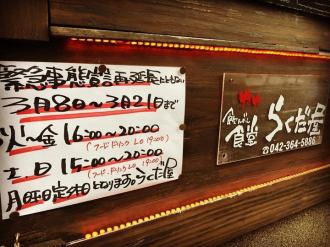 緊急事態宣言再延長にともない
3月8日〜3月21日まで
火〜金 16:00〜20:00
(フードドリンクLO 19:00)
土.日 15:00〜20:00
(フードドリンクLO 19:00)
月曜日定休日となります。らくだ屋
食堂
らくだ屋
☎042-364-5886